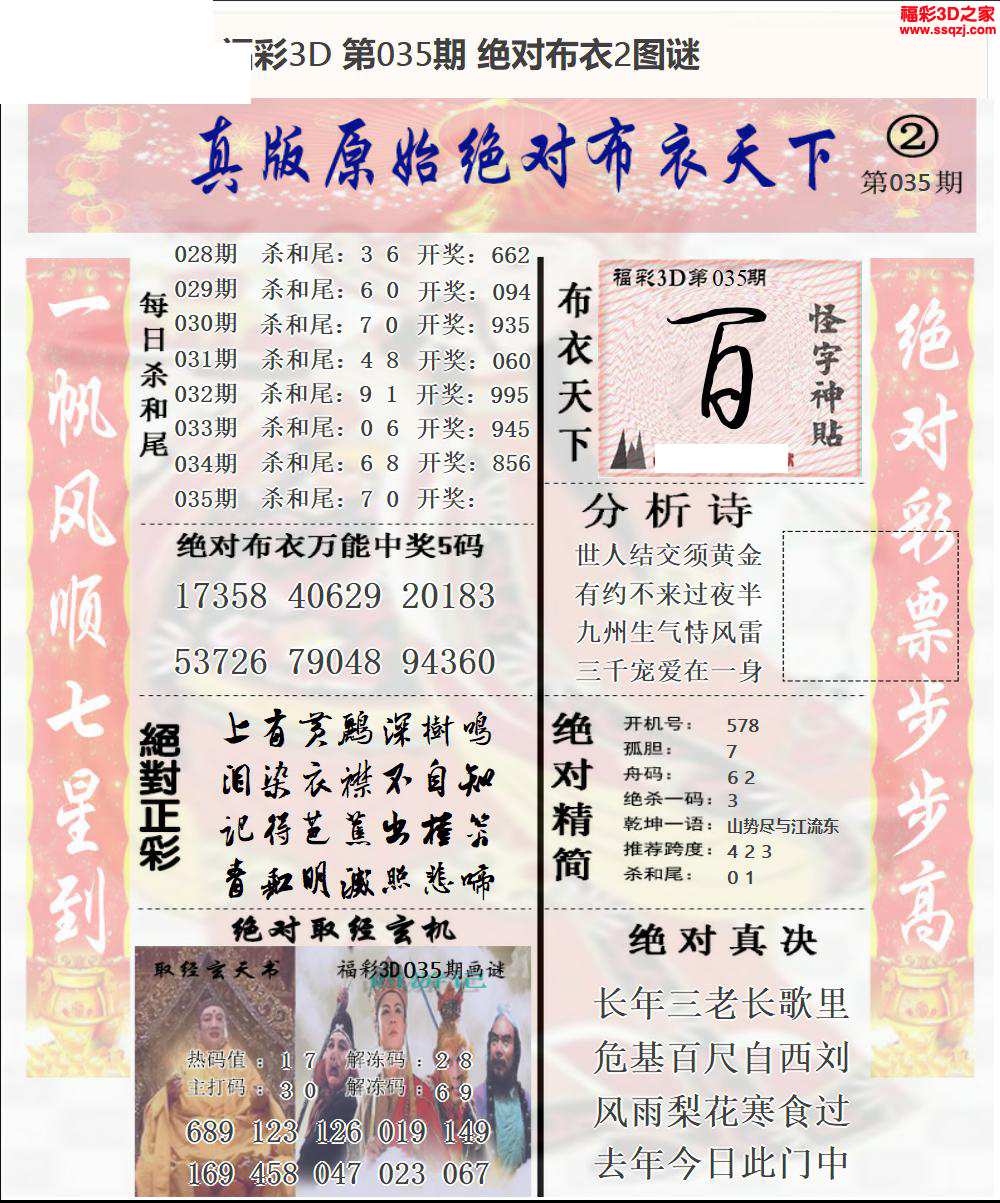 福彩3D之家
www.ssqzj.com
福彩3D 第035期 绝对布衣2图谜
真版原始绝对布衣天下
②
第035期
一帆风顺七星到
每日杀和尾
028期 杀和尾：3 6 开奖：662
029期 杀和尾：6 0 开奖：094
030期 杀和尾：7 0 开奖：935
031期 杀和尾：4 8 开奖：060
032期 杀和尾：9 1 开奖：995
033期 杀和尾：0 6 开奖：945
034期 杀和尾：6 8 开奖：856
035期 杀和尾：7 0 开奖：
绝对布衣万能中奖5码
17358 40629 20183
53726 79048 94360
絕對正彩
上有黄鸝深樹鳴
泪染衣襟不自知
记得芭蕉出槿篱
青和明滅照悲啼
绝对取经玄机
取经玄天书
福彩3D035期画谜
热码值：1 7 解冻码：2 8
主打码：3 0 解冻码：6 9
689 123 126 019 149
169 458 047 023 067
布衣天下
福彩3D第035期
百
怪字神貼
分析诗
世人结交须黄金
有约不来过夜半
九州生气恃风雷
三千宠爱在一身
绝对精简
开机号： 578
孤胆： 7
舟码： 6 2
绝杀一码：3
乾坤一语：山势尽与江流东
推荐跨度：4 2 3
杀和尾： 0 1
绝对真决
长年三老长歌里
危基百尺自西刘
风雨梨花寒食过
去年今日此门中
绝对彩票步步高